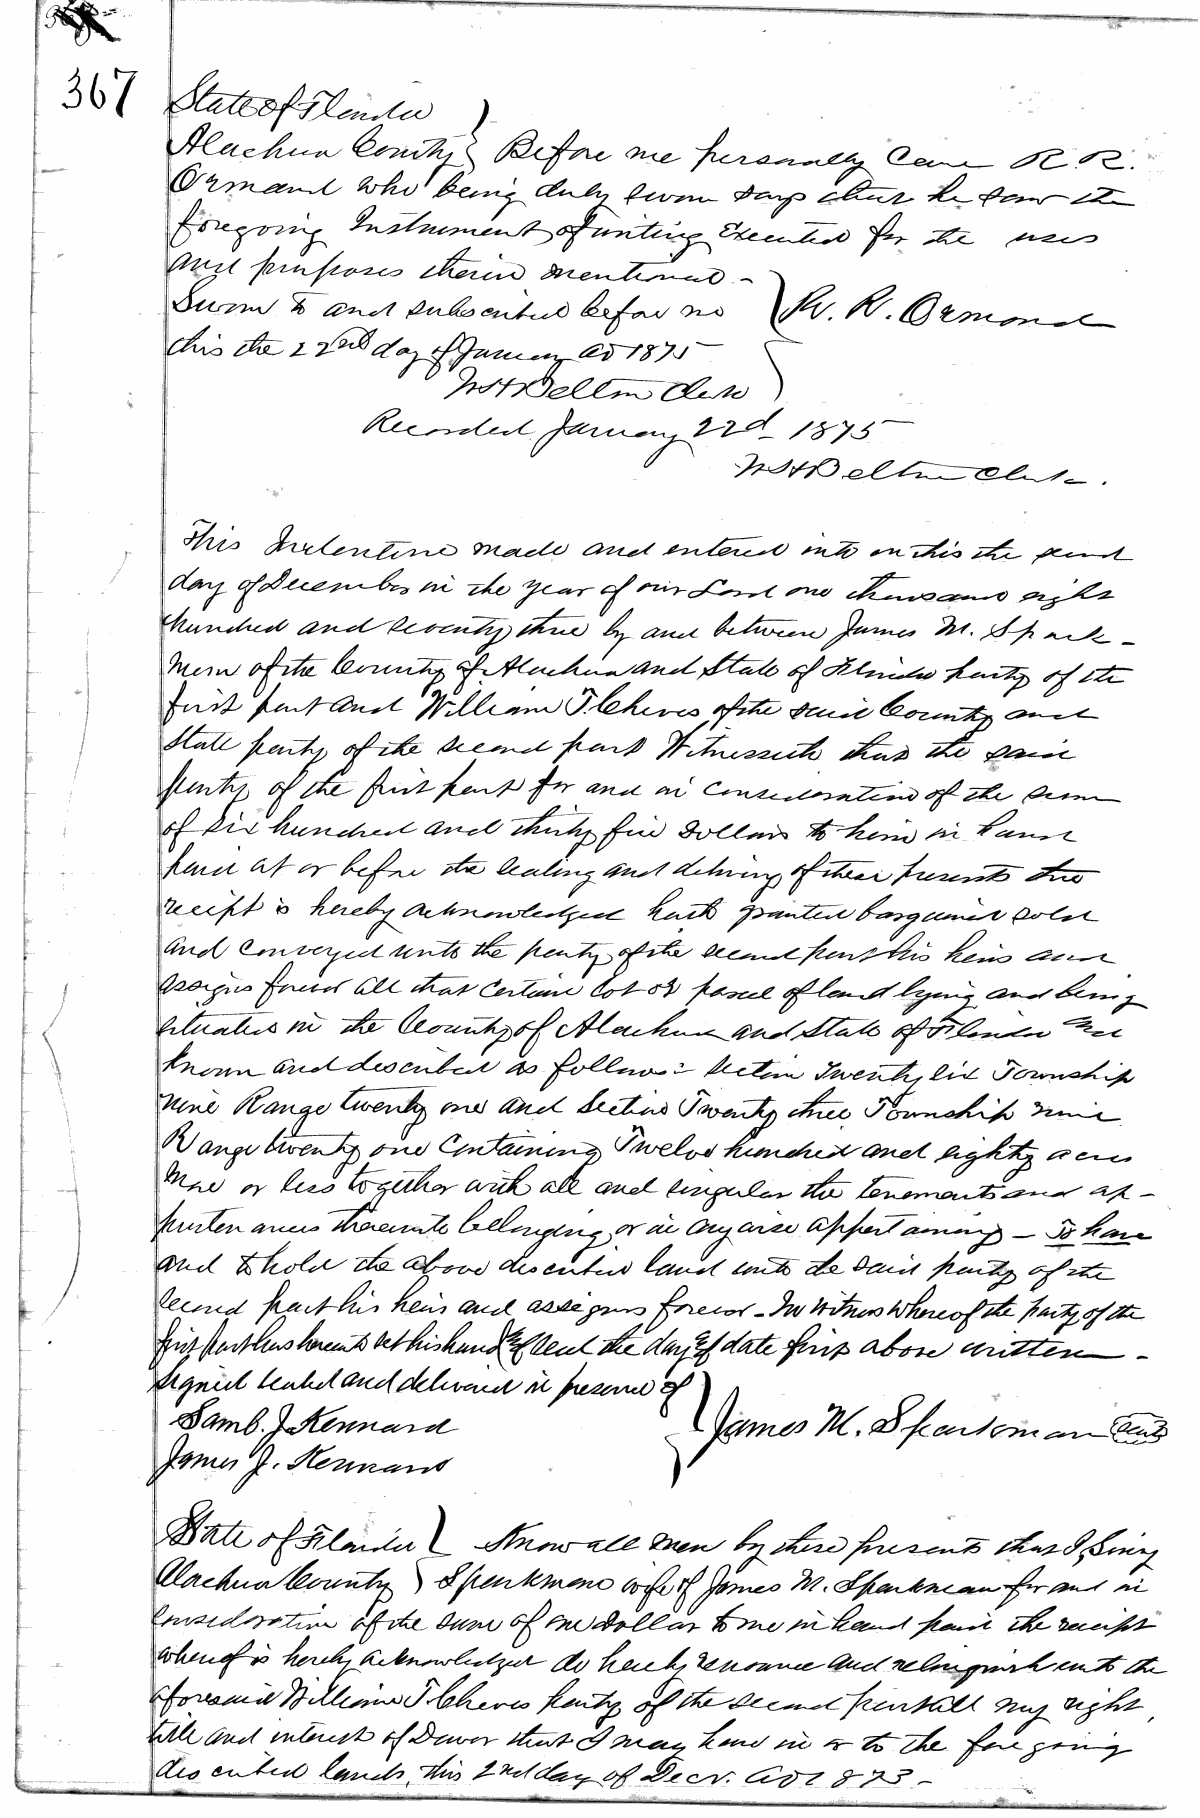 367
State of Florida
Alachua County } Before me personally came R. R.
Ormand who being duly sworn says that he saw the
foregoing Instrument of writing Executed for the uses
and purposes therein mentioned -
Sworn to and subscribed before me } R. R. Ormond
this the 22nd day of January AD 1875
Belton Clerk
Recorded January 22d 1875
Belton Clerk.
This Indenture made and entered into on this the second
day of December in the year of our Lord one thousand eight
hundred and seventy three by and between James M. Spark-
man of the County of Alachua and State of Florida party of the
first part and William T. Cheves of the said County and
State party of the second part Witnesseth that the said
party of the first part for and in consideration of the sum
of six hundred and thirty five Dollars to him in hand
paid at or before the sealing and delivery of these presents the
receipt is hereby acknowledged hath granted bargained sold
and conveyed unto the party of the second part his heirs and
assigns forever all that certain lot or parcel of land lying and being
situated in the County of Alachua and State of Florida and
known and described as follows: Section Twenty six Township
nine Range twenty one and Section Twenty three Township nine
Range twenty one Containing Twelve hundred and eighty acres
more or less together with all and singular the tenements and ap-
purtenances thereunto belonging or in anywise appertaining - To have
and to hold the above described land unto the said party of the
second part his heirs and assigns forever - In witness whereof the party of the
first part has hereunto set his hand & seal the day & date first above written -
Signed sealed and delivered in presence of
Samb. J. Kennard } James M. Sparkman Seal
James J. Kennard
State of Florida } Know all men by these presents that I,
Alachua County } Sparkman wife of James M. Sparkman for and in
consideration of the sum of one dollar to me in hand paid the receipt
whereof is hereby acknowledged do hereby renounce and relinquish unto the
aforesaid William T. Cheves party of the second part all my right,
title and interest of Dower that I may have in or to the foregoing
described lands, this 2nd day of Decr. AD 1873 -